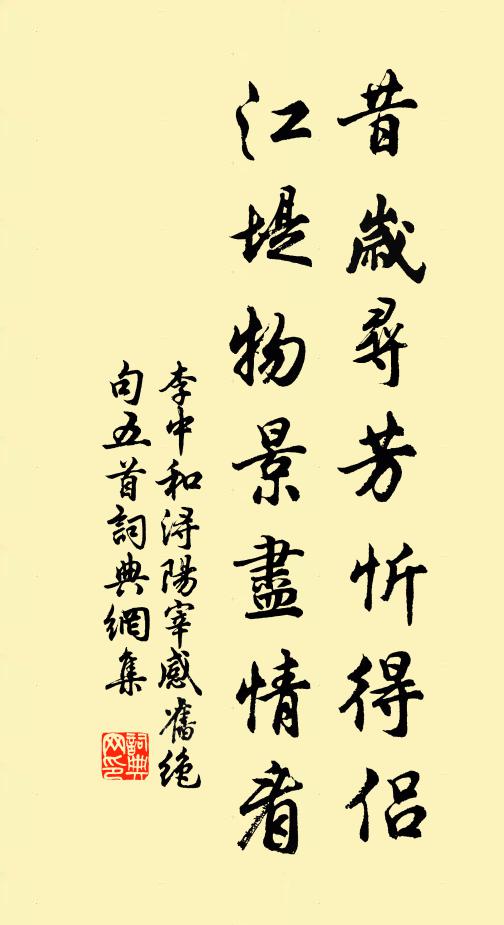 昔歲尋芳忻得侶
江堤物景盡情看
李中和潯陽宰感舊絶
句五首詞典網集
詞典網印